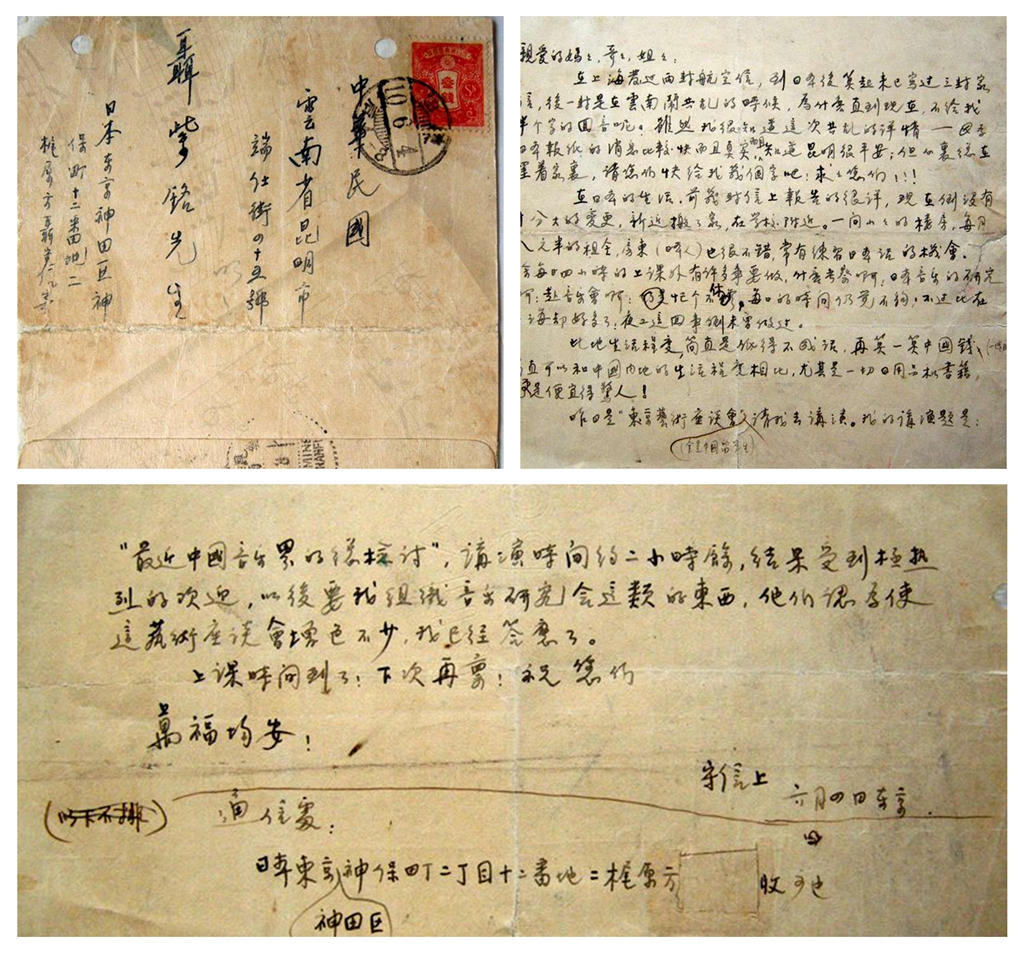 中華民國
雲南省昆明市
端仕街四十五號
聶紫銘先生
日本東京神田區神
保町十二番地二
10.6.4
親愛的媽媽,哥哥,姐姐:
在上海發過兩封航空信,到日本後算起來已寫過三封家
信,後一封是在雲南鬧共亂的時候,為什麼直到現在,不給我
半個字的回音呢。雖然我很知道這次共亂的詳情——因為
日本報紙的消息比較快而且真實,知道昆明很平安;但心裏總在
罣着家裏,請您們快給我幾個字吧!求求您們!!!
在日本的生活,前幾封信上報告的很詳,現在倒沒有
十分大的變更,新近搬了家,在學校附近。一間小小的樓房,每月
八元半的租金,房東也很不錯,常有練習日本話的機會。
每日四小時的上課外有許多事要做,什麼考察啊;日本音樂的研究
啊;赴音樂會啊;每日的時間仍覺不夠;不過比在
上海却好多了;夜工這回事倒未曾做过。
此地生活程度,简直是低得不成話,再算一算中國錢,
簡直可以和中國内地的生活程度相比,尤其是一切日用品和書籍,
更是便宜得驚人!
昨日是“東京藝術座談會”請我去講演。我的講演題是:
(全是中國留學生)
“最近中國音乐界的總檢討”,講演時间约二小時餘,結果受到極热
烈的欢迎,以後要我組織音乐研究會這類的東西,他们認為使
這藝術座谈會增色不少,我已经答應了。
上課時间到了!下次再寫!祝您们
萬福均安!
守信上
六月四日东京.
(以下不排)
通信處:
日本東京神保町二丁目十二番地二梶原方
收可也
神田区